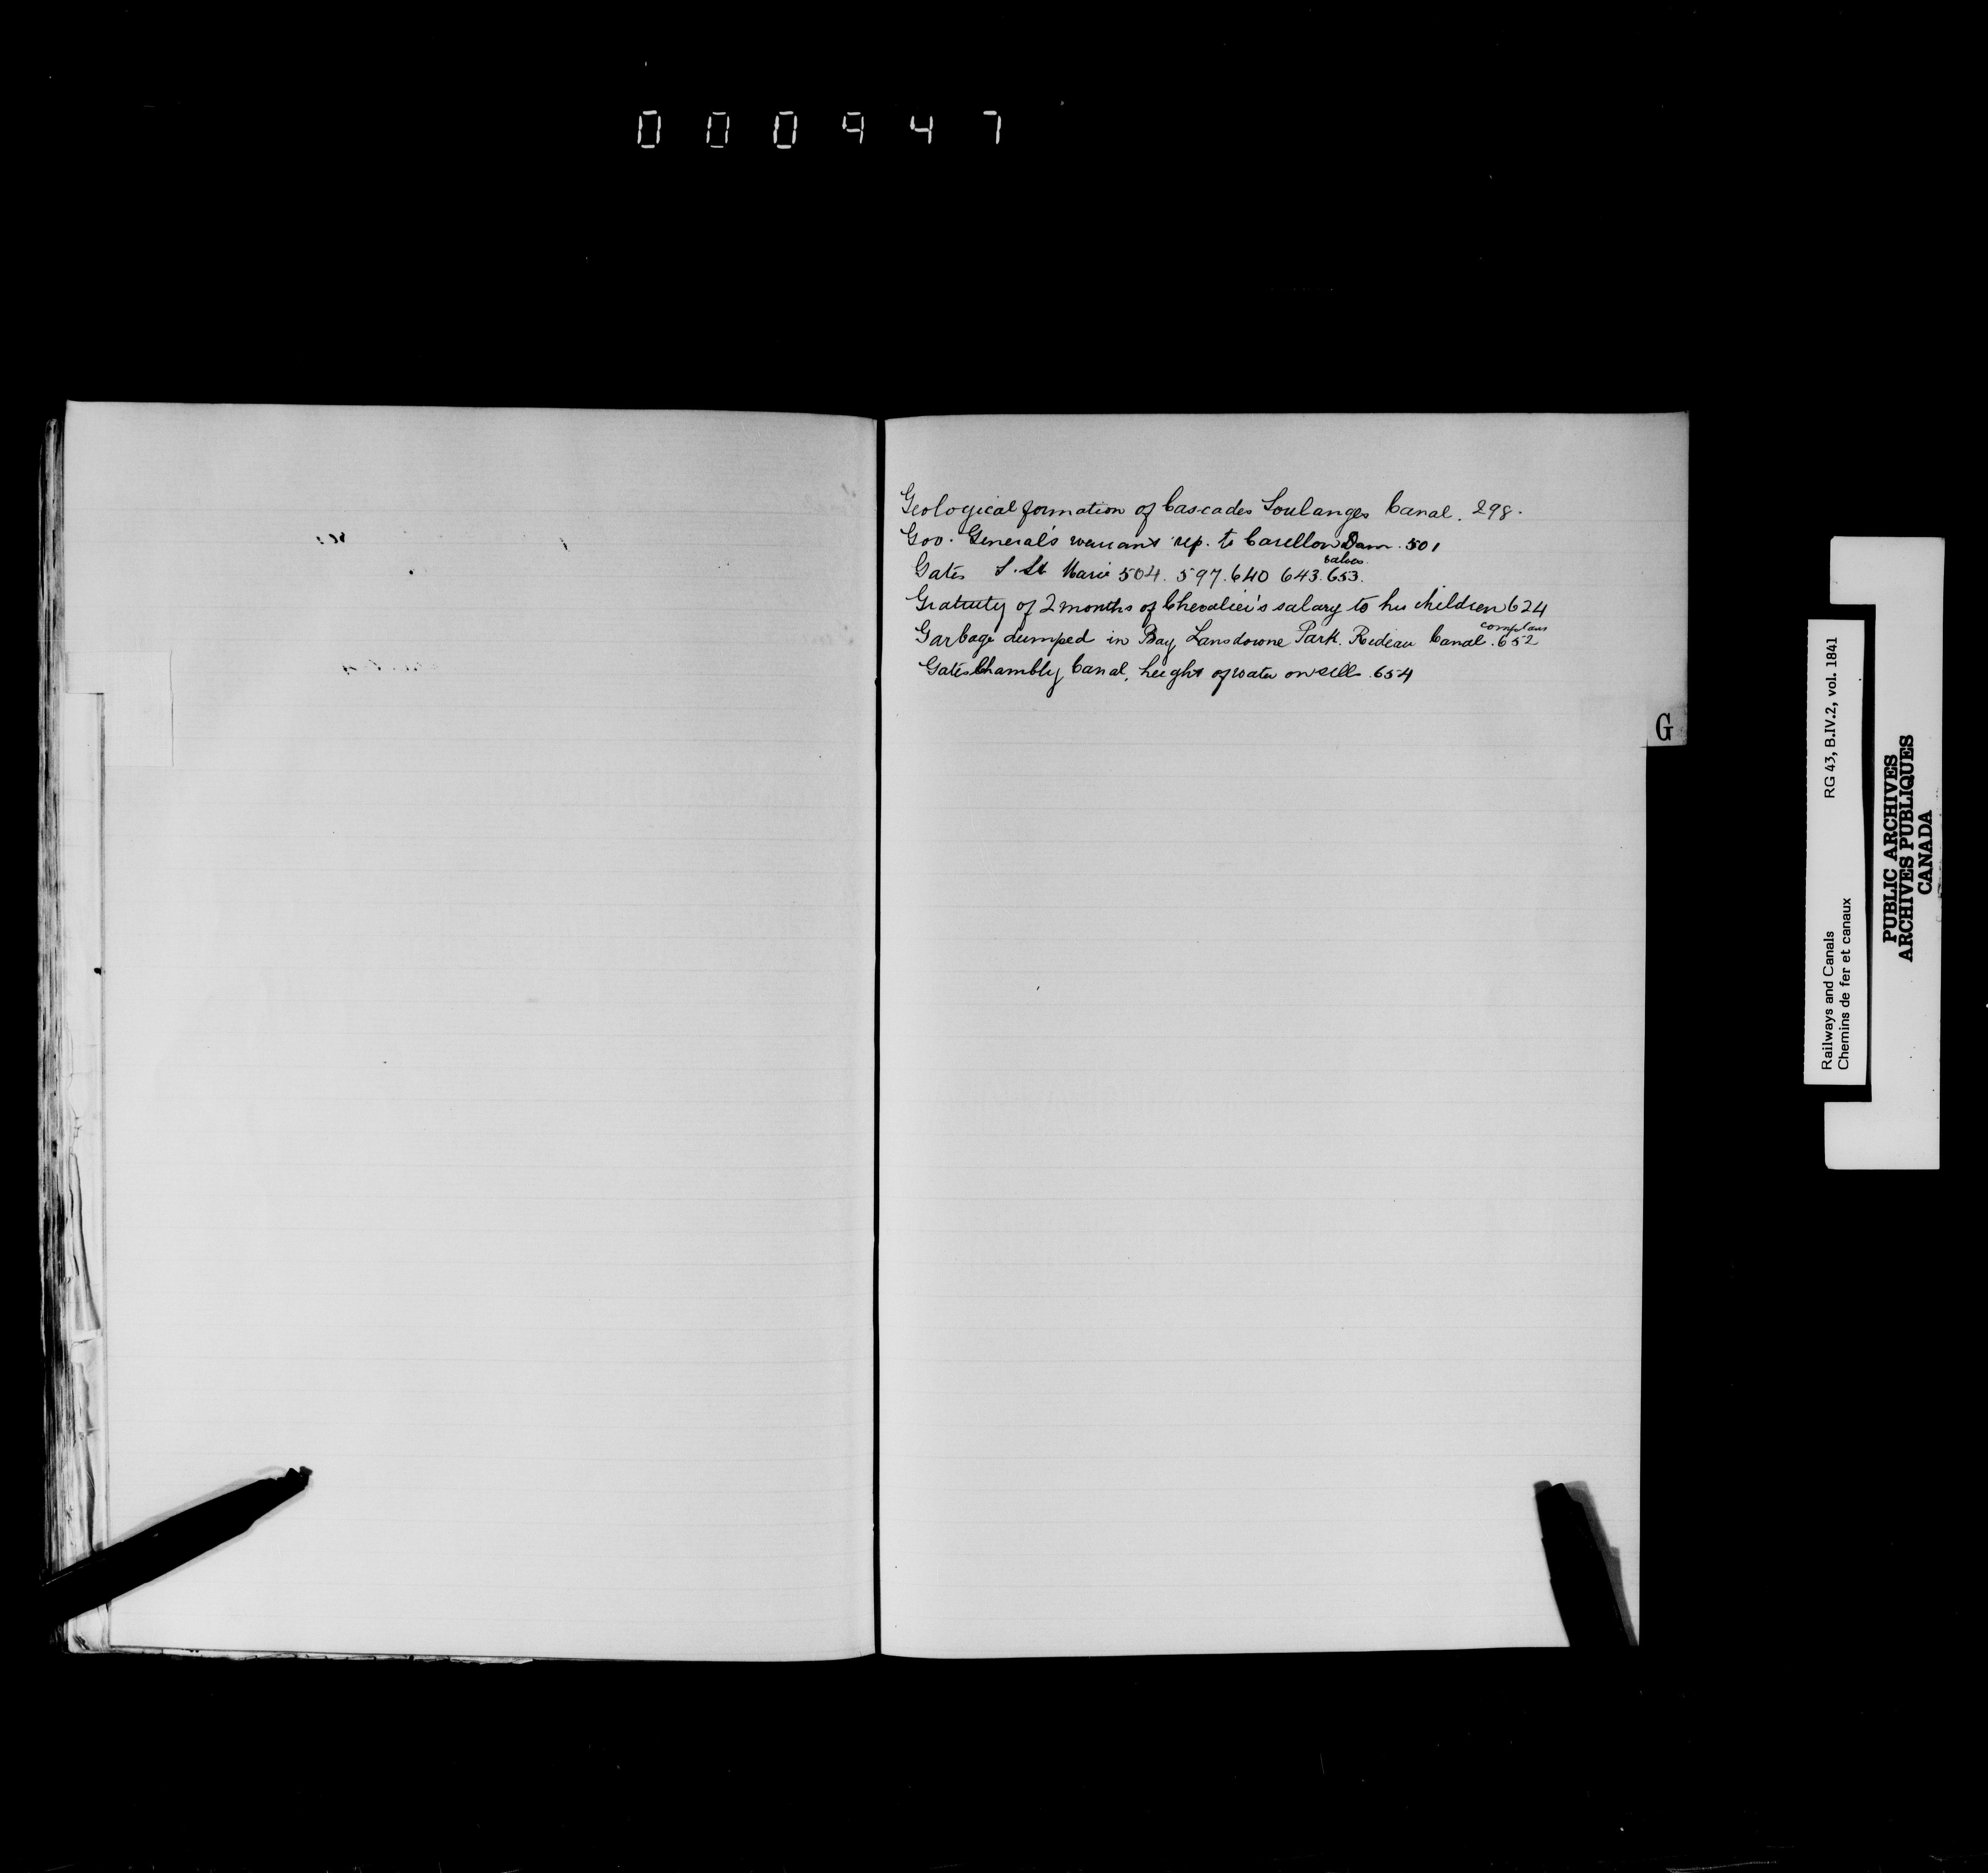 000947
Geological formation of Cascades Soulanges Canal. 298.
Gov. General's warrant rep. to Carillon Dam. 501
Gates S. St Marie 504. 597. 640 643. 653.
valves
Gratuity of 2 months of Chevalier's salary to his children 624
Garbage dumped in Bay Lansdowne Park. Rideau Canal. 652
Gates Chambly Canal, height of water on sill. 654
G
Railways and Canals RG 43, B.IV.2, vol. 1841
Chemins de fer et canaux
PUBLIC ARCHIVES
ARCHIVES PUBLIQUES
CANADA